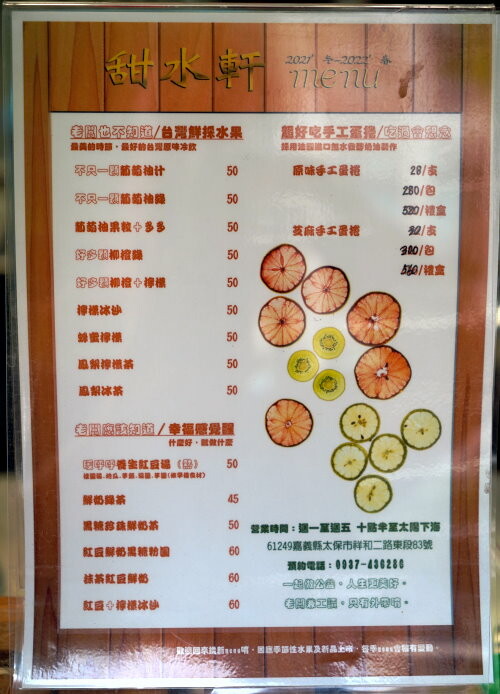 甜水軒 2021' 冬~2022' 春 menu
老闆也不知道/台灣鮮採水果
最美的時節，最好的台灣原味冷飲
不只一顆葡萄柚汁 50
不只一顆葡萄柚綠 50
葡萄柚果粒+多多 50
好多顆柳橙綠 50
好多顆柳橙+檸檬 50
檸檬冰沙 50
蜂蜜檸檬 50
鳳梨檸檬茶 50
鳳梨冰茶 50
老闆應該知道/幸福感覺醒
什麼好，就做什麼
暖呼呼養生紅豆湯（熱） 50
鮮奶綠茶 45
黑糖珍珠鮮奶茶 50
紅豆鮮奶黑糖粉圓 60
抹茶紅豆鮮奶 60
紅豆+檸檬冰沙 60
超好吃手工蛋捲/吃過會想念
原味手工蛋捲 28/支
280/包
530/禮盒
芝麻手工蛋捲 30/支
300/包
560/禮盒
營業時間：週一至週五 十點半至太陽下海
61249嘉義縣太保市祥和二路東段83號
預約電話：0937-436286
一起做公益，人生更美好。
老闆養工讀，只有外帶唷。